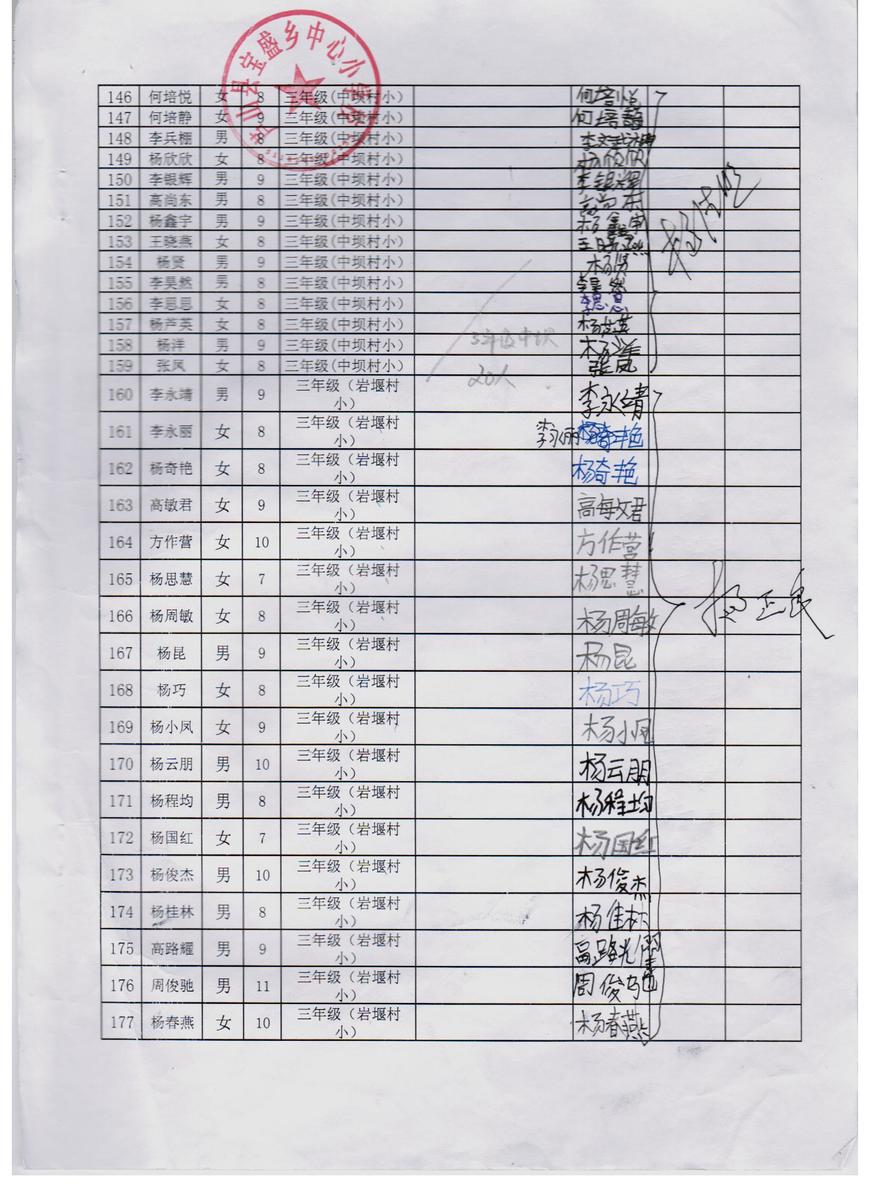 芦山县宝盛乡中心小学
146 何培悦 女 8 三年级(中坝村小) 何培悦
147 何培静 女 9 三年级(中坝村小) 何培静
148 李兵棚 男 8 三年级(中坝村小)
149 杨欣欣 女 8 三年级(中坝村小) 杨欣欣
150 李银辉 男 9 三年级(中坝村小) 李银辉
151 高尚东 男 8 三年级(中坝村小) 高尚东
152 杨鑫宇 男 9 三年级(中坝村小) 杨鑫宇
153 王晓燕 女 8 三年级(中坝村小) 王晓燕
154 杨贤 男 9 三年级(中坝村小) 杨贤
155 李昊然 男 8 三年级(中坝村小) 李昊然
156 李思思 女 8 三年级(中坝村小) 李思思
157 杨芦英 女 8 三年级(中坝村小) 杨芦英
158 杨洋 男 9 三年级(中坝村小) 杨洋
159 张凤 女 8 三年级(中坝村小) 张凤
20人
160 李永靖 男 9 三年级（岩堰村小） 李永靖
161 李永丽 女 8 三年级（岩堰村小） 李永丽 杨奇艳
162 杨奇艳 女 8 三年级（岩堰村小） 杨奇艳
163 高敏君 女 9 三年级（岩堰村小） 高敏君
164 方作营 女 10 三年级（岩堰村小） 方作营
165 杨思慧 女 7 三年级（岩堰村小） 杨思慧
166 杨周敏 女 8 三年级（岩堰村小） 杨周敏
杨正民
167 杨昆 男 9 三年级（岩堰村小） 杨昆
168 杨巧 女 8 三年级（岩堰村小） 杨巧
169 杨小凤 女 9 三年级（岩堰村小） 杨小凤
170 杨云朋 男 10 三年级（岩堰村小） 杨云朋
171 杨程均 男 8 三年级（岩堰村小） 杨程均
172 杨国红 女 7 三年级（岩堰村小） 杨国红
173 杨俊杰 男 10 三年级（岩堰村小） 杨俊杰
174 杨桂林 男 8 三年级（岩堰村小） 杨佳林
175 高路耀 男 9 三年级（岩堰村小） 高路耀
176 周俊驰 男 11 三年级（岩堰村小） 周俊驰
177 杨春燕 女 10 三年级（岩堰村小） 杨春燕